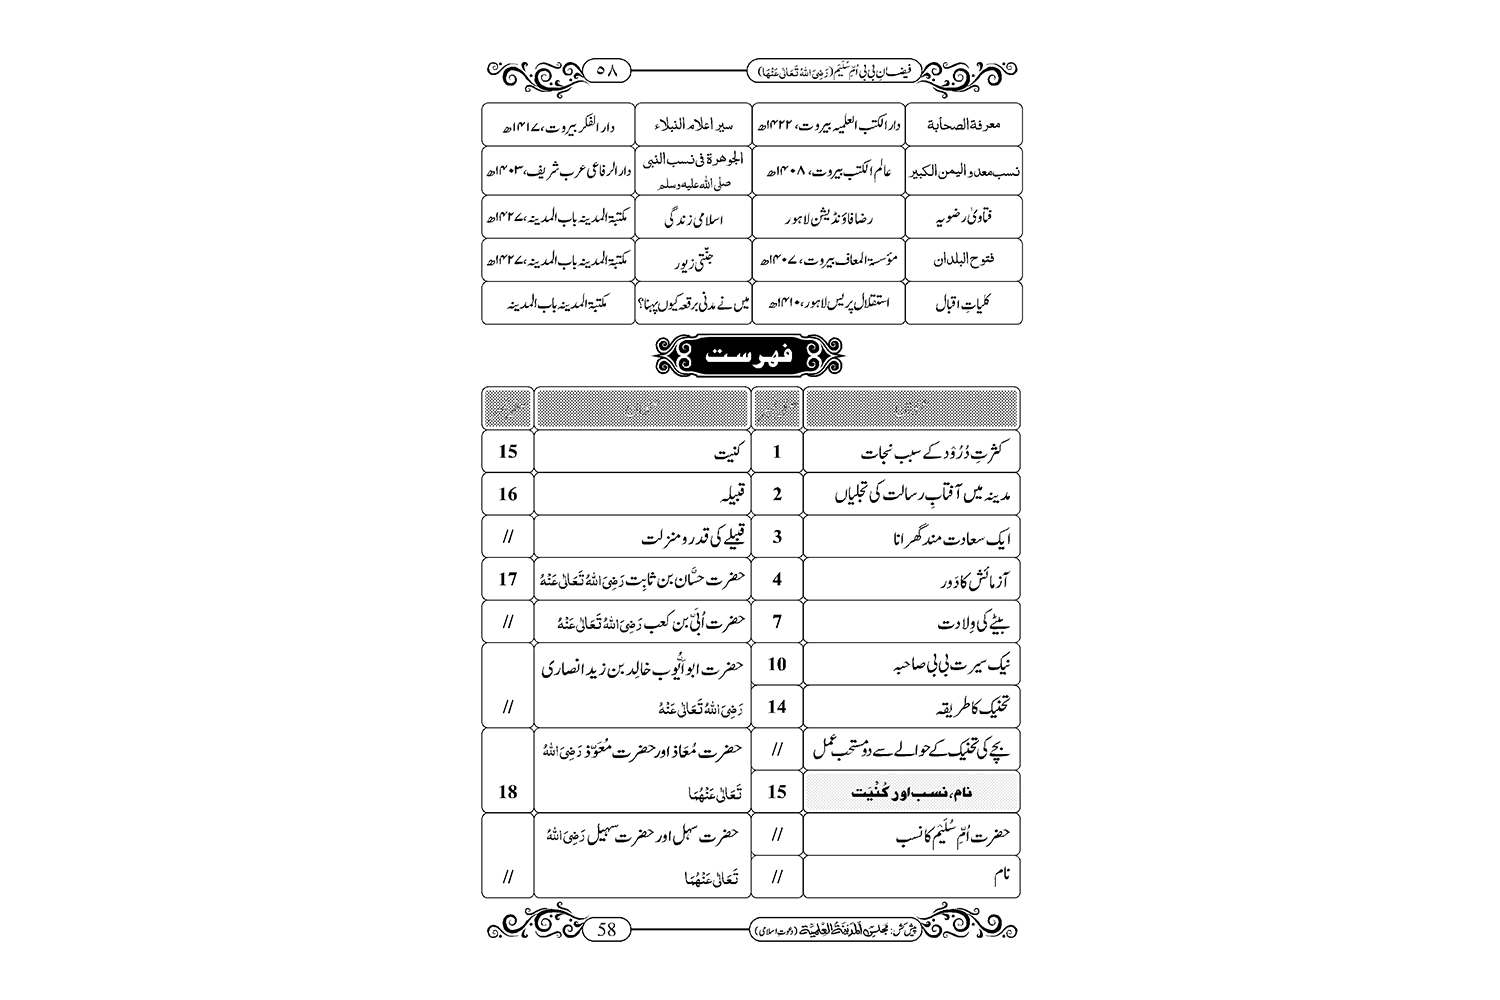 فیضانِ بی بی اُمِّ سُلَیْم (رَضِیَ اللہُ تَعَالٰی عَنْہَا) ۵۸
معرفة الصحابة دار الکتب العلمیہ بیروت، ۱۴۲۲ھ سیر اعلام النبلاء دار الفکر بیروت، ۱۴۱۷ھ
نسب معد و الیمن الکبیر عالم الکتب بیروت، ۱۴۰۸ھ الجوهرة فی نسب النبی صلی اللہ علیہ وسلم دار الرفاعی عرب شریف، ۱۴۰۳ھ
فتاویٰ رضویہ رضا فاؤنڈیشن لاہور اسلامی زندگی مکتبۃ المدینہ باب المدینہ، ۱۴۲۷ھ
فتوح البلدان مؤسسۃ المعاف بیروت، ۱۴۰۷ھ جنّتی زیور مکتبۃ المدینہ باب المدینہ، ۱۴۲۷ھ
کلیاتِ اقبال استقلال پریس لاہور، ۱۴۱۰ھ میں نے مدنی برقعہ کیوں پہنا؟ مکتبۃ المدینہ باب المدینہ
فہرست
کثرتِ دُرُوْد کے سبب نجات 1 کنیت 15
مدینہ میں آفتابِ رسالت کی تجلیاں 2 قبیلہ 16
ایک سعادت مند گھرانا 3 قبیلے کی قدر و منزلت //
آزمائش کا دَور 4 حضرت حسَّان بن ثابِت رَضِیَ اللہُ تَعَالٰی عَنْہُ 17
بیٹے کی وِلادت 7 حضرت اُبَیّ بن کعب رَضِیَ اللہُ تَعَالٰی عَنْہُ //
نیک سیرت بی بی صاحبہ 10 حضرت ابو ایُّوب خالِد بن زید انصاری
تحنیک کا طریقہ 14 رَضِیَ اللہُ تَعَالٰی عَنْہُ //
بچے کی تحنیک کے حوالے سے دو مستحب عمل // حضرت مُعَاذ اور حضرت مُعَوِّذ رَضِیَ اللہُ
نام، نسب اور کُنْیَت 15 تَعَالٰی عَنْہُمَا 18
حضرت اُمِّ سُلَیْم کا نسب // حضرت سہل اور حضرت سہیل رَضِیَ اللہُ
نام // تَعَالٰی عَنْہُمَا //
پیش کش: مجلس اَلْمَدِیْنَۃُ الْعِلْمِیَّۃ (دعوتِ اسلامی) 58